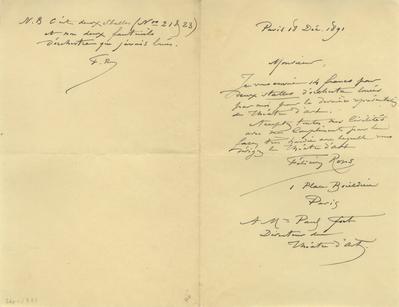 N. B. C'est deux stalles (Nos 21 & 23)
et non deux fauteuils
d'orchestre que j'avais loués.
F. R.
Paris 18 Déc. 1891
Monsieur,
Je vous envoie 14 francs pour
deux stalles d'orchestre louées
par moi pour la dernière représentation
du Théâtre d'Art.
Acceptez toutes mes civilités
avec mes compliments pour la
façon très hardie avec laquelle vous
dirigez le Théâtre d'Art
Félicien Rops
1 Place Boieldieu
Paris
A Mr Paul Fort
Directeur du
Théâtre d'Art.